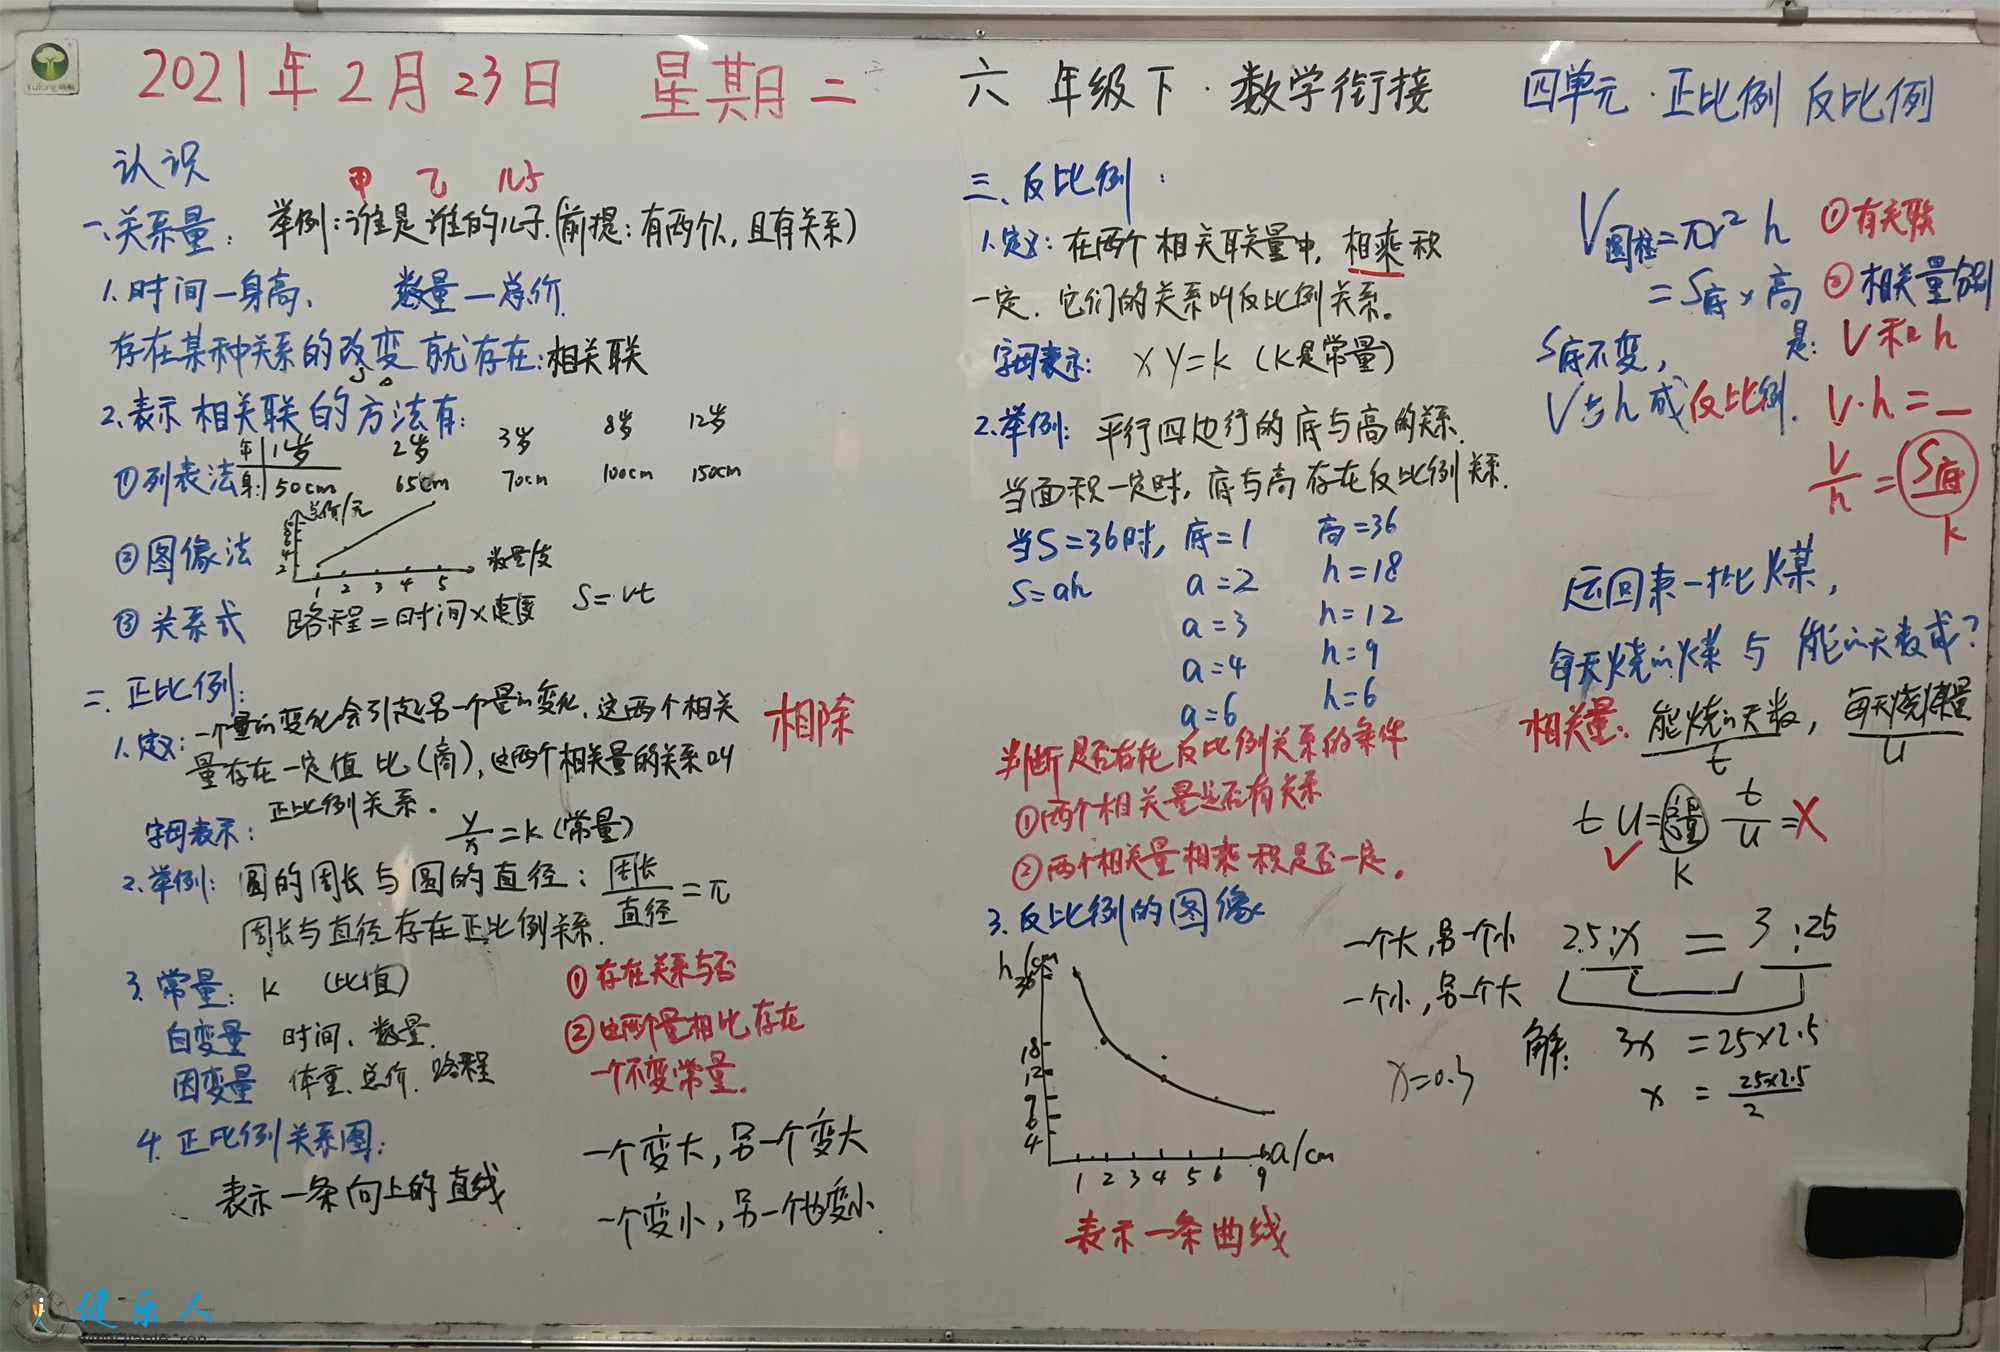 2021年2月23日 星期二 六年级下·数学衔接 四单元·正比例 反比例
认识
甲 乙 儿子
一.关系量: 举例:谁是谁的儿子.(前提:有两个人,且有关系)
1.时间—身高、 数量—总价.
存在某种关系的改变 就存在:相关联
2.表示相关联的方法有:
①列表法
年 1岁 2岁 3岁 8岁 12岁
身: 50cm 65cm 70cm 100cm 150cm
②图像法
总价/元
8
6
4
2
1 2 3 4 5 数量/支
③关系式 路程=时间×速度 S=vt
二.正比例:
1.定义:一个量的变化会引起另一个量的变化,这两个相关
量存在一定值 比(商),这两个相关量的关系叫
正比例关系。
相除
字母表示: y/x=k(常量)
2.举例: 圆的周长与圆的直径: 周长/直径=π
周长与直径存在正比例关系.
3.常量: K (比值)
自变量 时间、数量.
因变量 体重、总价、路程
①存在关系与否
②这两个量相比存在
一个不变常量.
4.正比例关系图:
表示一条向上的直线
一个变大,另一个变大
一个变小,另一个也变小.
三、反比例:
1.定义:在两个相关联量中,相乘积
一定.它们的关系叫反比例关系。
字母表示: xy=k (K是常量)
2.举例: 平行四边行的底与高的关系.
当面积一定时,底与高存在反比例关系.
当S=36时, 底=1 高=36
S=ah a=2 h=18
a=3 h=12
a=4 h=9
a=6 h=6
判断是否存在反比例关系的条件
①两个相关量是否有关系
②两个相关量相乘 积是否一定。
3.反比例的图像
h/cm
36
18
12
9
6
4
1 2 3 4 5 6 9 a/cm
表示一条曲线
V圆柱=πr²h
=S底×高
S底不变,
V与h成反比例.
①有关联
②相关量分别
是: V和h
V·h=_
V/h=S底
k
运回来一批煤,
每天烧的煤与能的天数成?
相关量: 能烧的天数, 每天烧煤量
t u
t u=总量 t/u=X
✓ K
一个大,另一个小
一个小,另一个大
2.5:x = 3:25
解: 3x =25×2.5
x = 25×2.5/2
x=0.3
健乐人